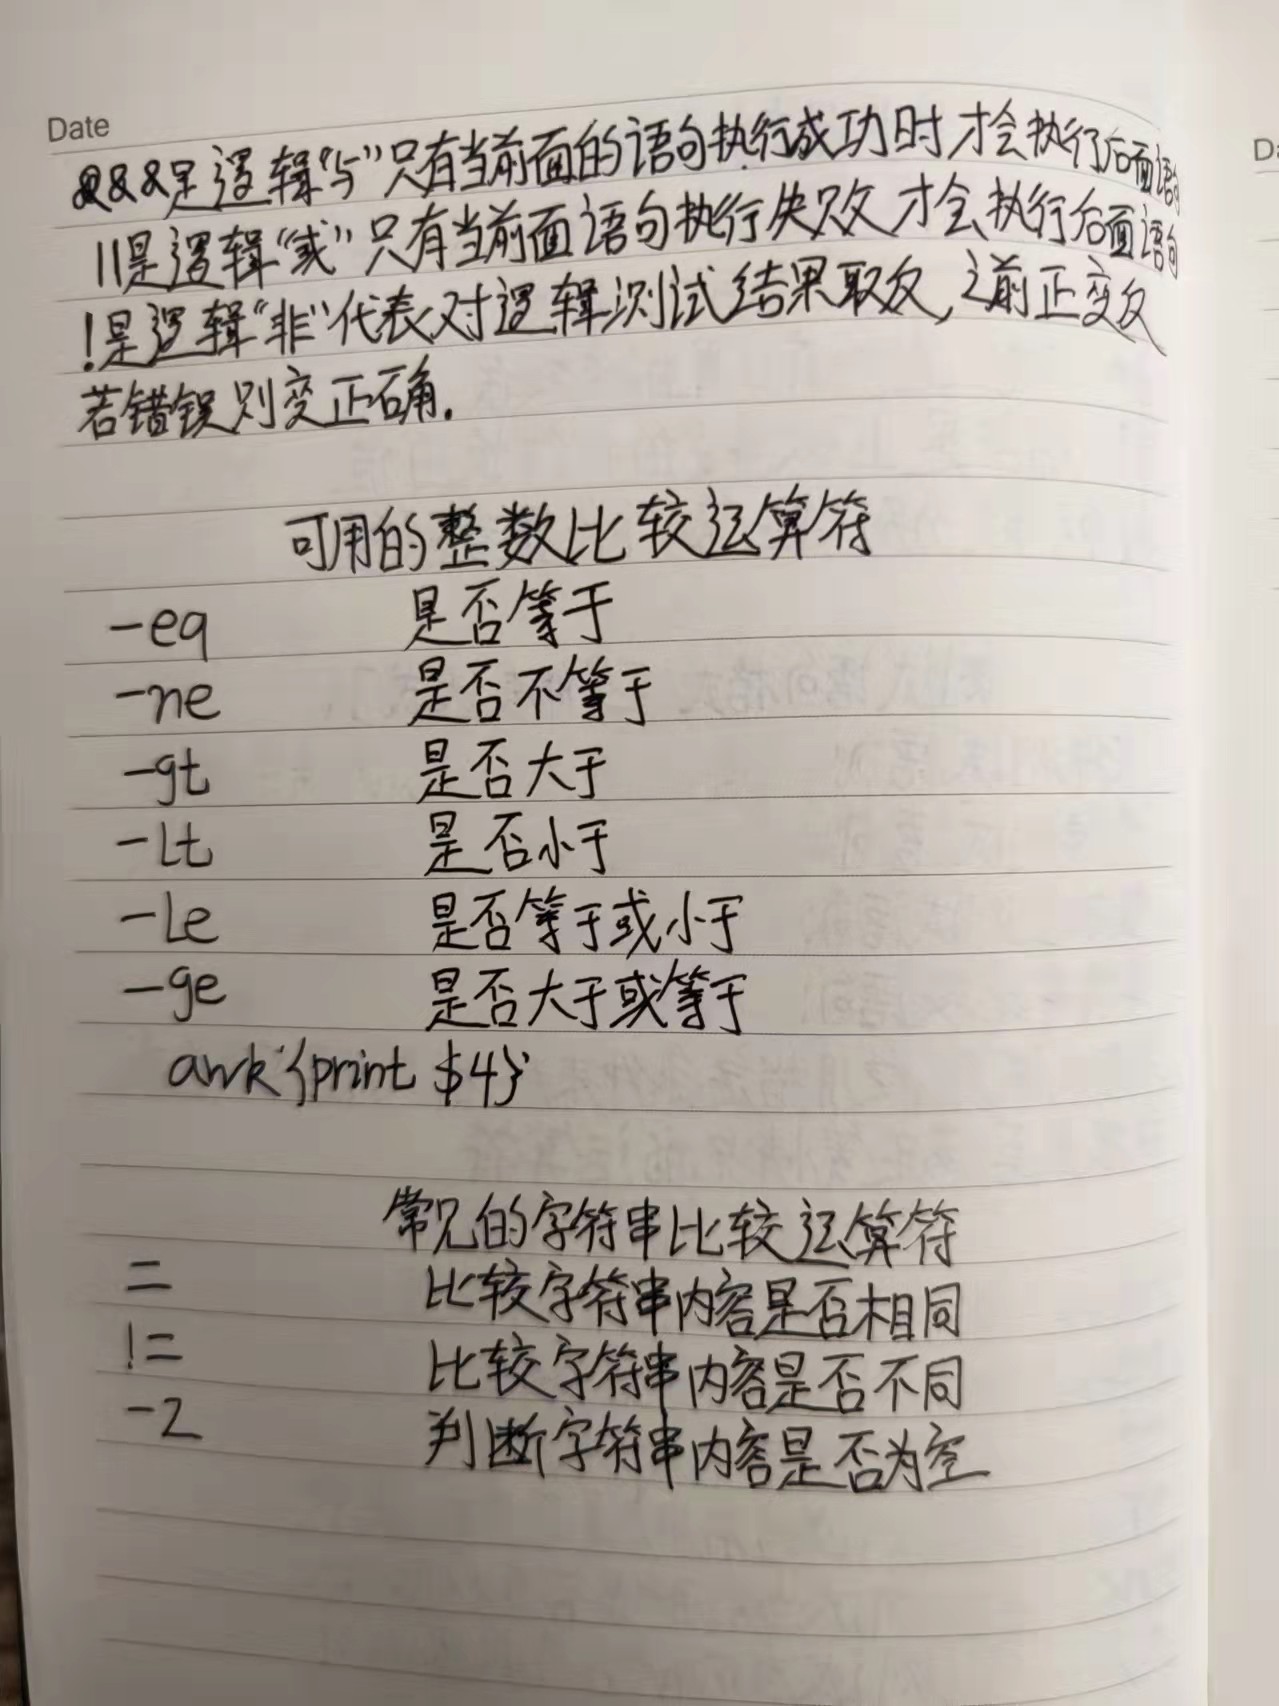 Date
&&是逻辑“与”只有当前面的语句执行成功时才会执行后面语句
||是逻辑“或”只有当前面语句执行失败才会执行后面语句
!是逻辑“非”代表对逻辑测试结果取反,之前正变反
若错误则变正确.
可用的整数比较运算符
-eq 是否等于
-ne 是否不等于
-gt 是否大于
-lt 是否小于
-le 是否等于或小于
-ge 是否大于或等于
awk '{print $4}'
常见的字符串比较运算符
= 比较字符串内容是否相同
!= 比较字符串内容是否不同
-z 判断字符串内容是否为空